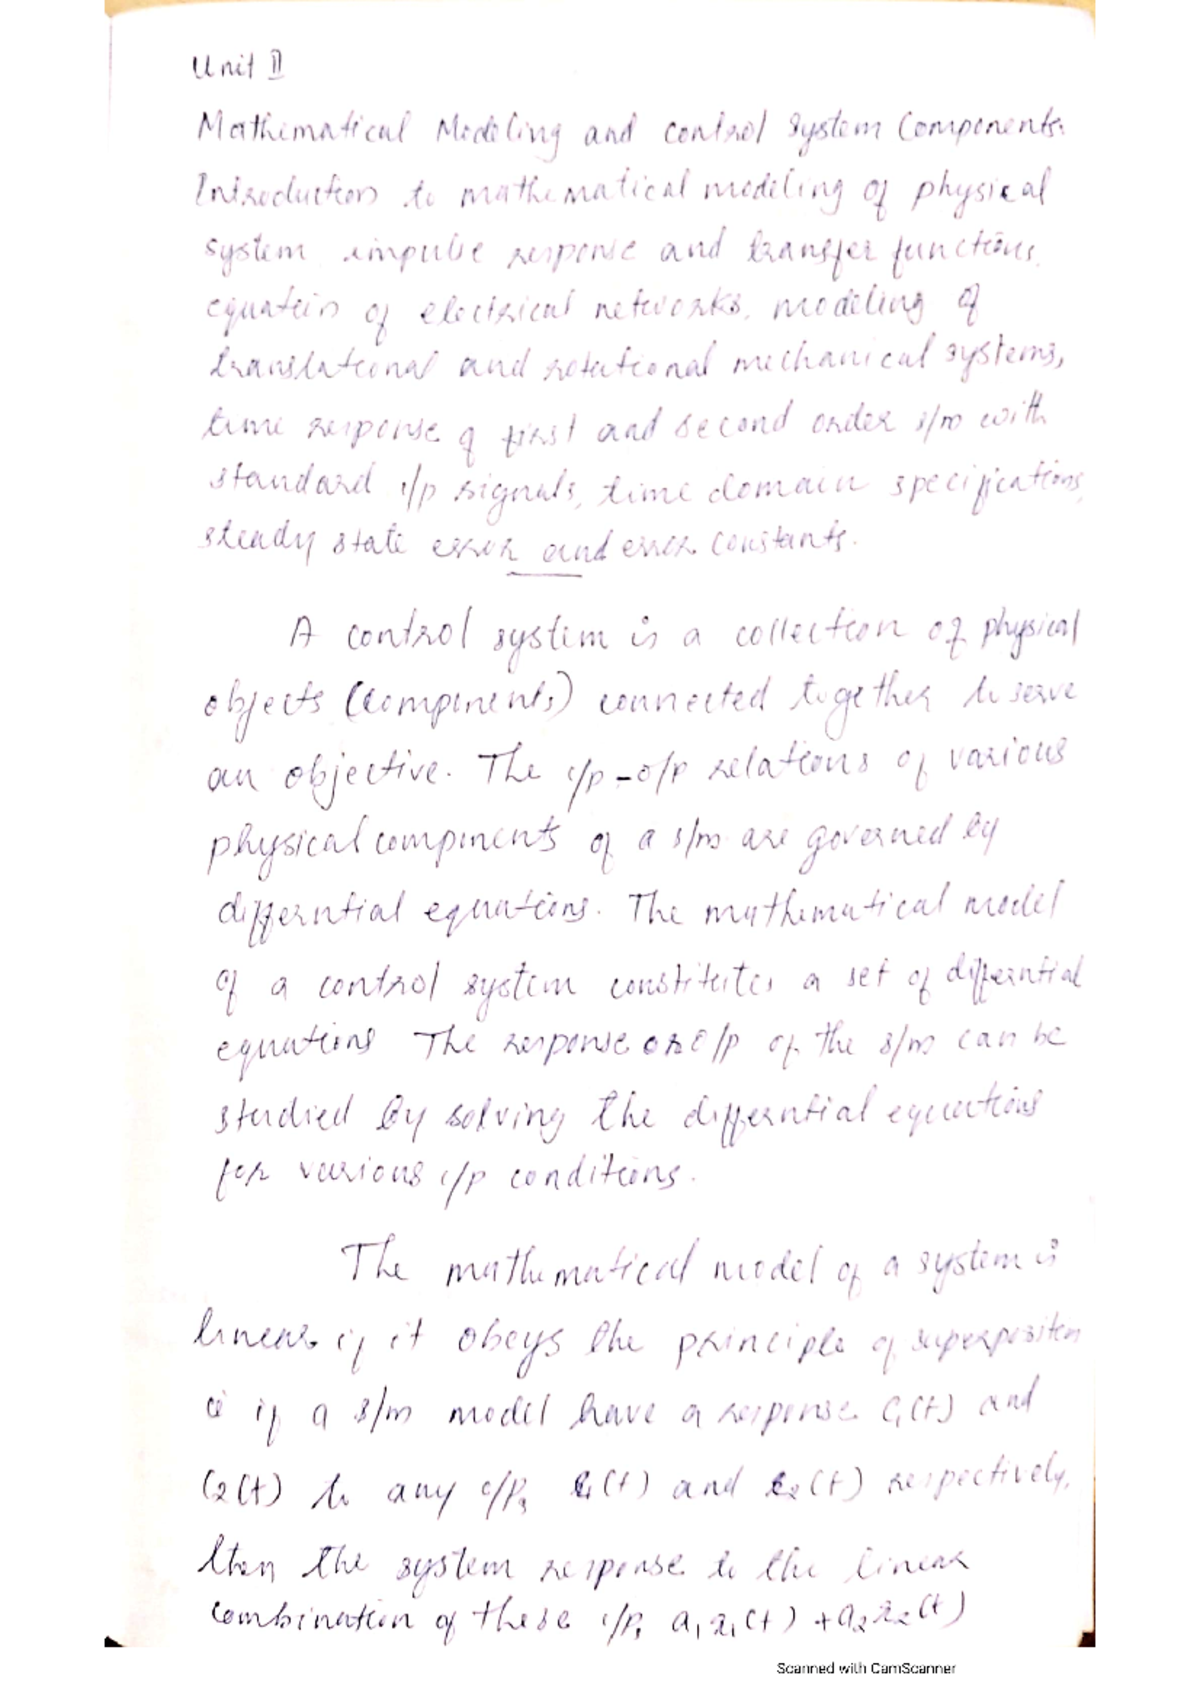 Unit II
Mathematical Modeling and control system Components:
Introduction to mathematical modeling of physical
system impulse response and transfer functions,
equation of electrical networks, modeling of
translational and rotational mechanical systems,
time response of first and second order s/m with
standard i/p signals, time domain specifications,
steady state error and error constants.
A control system is a collection of physical
objects (components) connected together to serve
an objective. The i/p-o/p relations of various
physical components of a s/m are governed by
differntial equations. The mathematical model
of a control system constitutes a set of differntial
equations The response or o/p of the s/m can be
studied by solving the differntial equations
for various i/p conditions.
The mathematical model of a system is
linear if it obeys the principle of superposition
ie if a s/m model have a response C1(t) and
C2(t) to any i/ps r1(t) and r2(t) respectively,
then the system response to the linear
combination of these i/ps a1 r1(t) + a2 r2(t)
Scanned with CamScanner